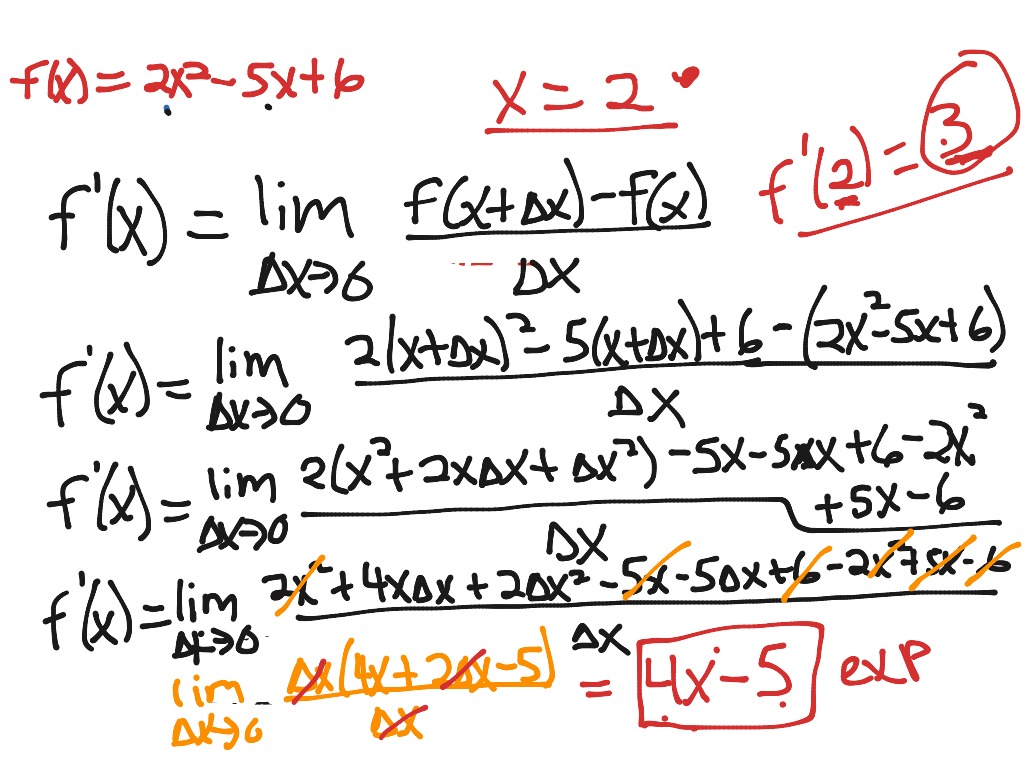 f(x) = 2x² - 5x + 6
x = 2
f'(2) = 3
f'(x) = lim Δx→0 f(x+Δx) - f(x) / Δx
f'(x) = lim Δx→0 2(x+Δx)² - 5(x+Δx) + 6 - (2x² - 5x + 6) / Δx
f'(x) = lim Δx→0 2(x² + 2xΔx + Δx²) - 5x - 5Δx + 6 - 2x² + 5x - 6 / Δx
f'(x) = lim Δx→0 2x² + 4xΔx + 2Δx² - 5x - 5Δx + 6 - 2x² + 5x - 6 / Δx
lim Δx→0 Δx(4x + 2Δx - 5) / Δx = 4x - 5 exp